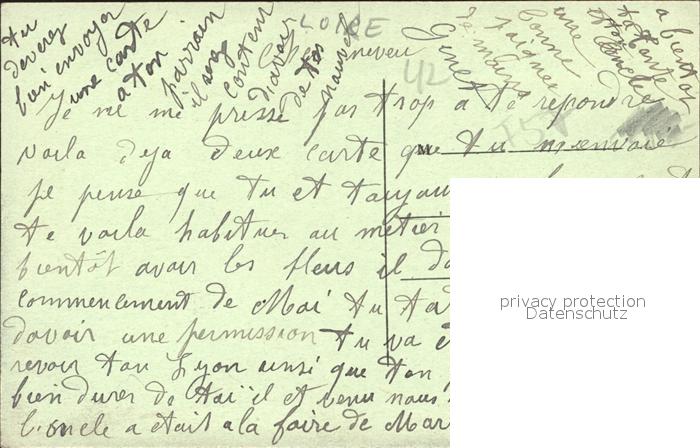 tu
devrez
bien envoyer
une carte
a ton
parrain
il serez
content
d'avoir
de tes
nouvel
LOIRE
Cher neveu
42
Ginet
une
bonne
poigner
de mains
ta tante
et ton
oncle
a bientot
Je me me presse pas trop a te repondre
voila deja deux carte que tu m'envoié
M
je pense que tu et toujou
te voila habituer au métier
bientôt avoir les fleurs il do
commencement de Mai tu ta
davoir une permission tu va
revoir ton Lyon ainsi que ton
bien durer de tai il et venu nous
l'oncle a était a la foire de Mar
privacy protection
Datenschutz